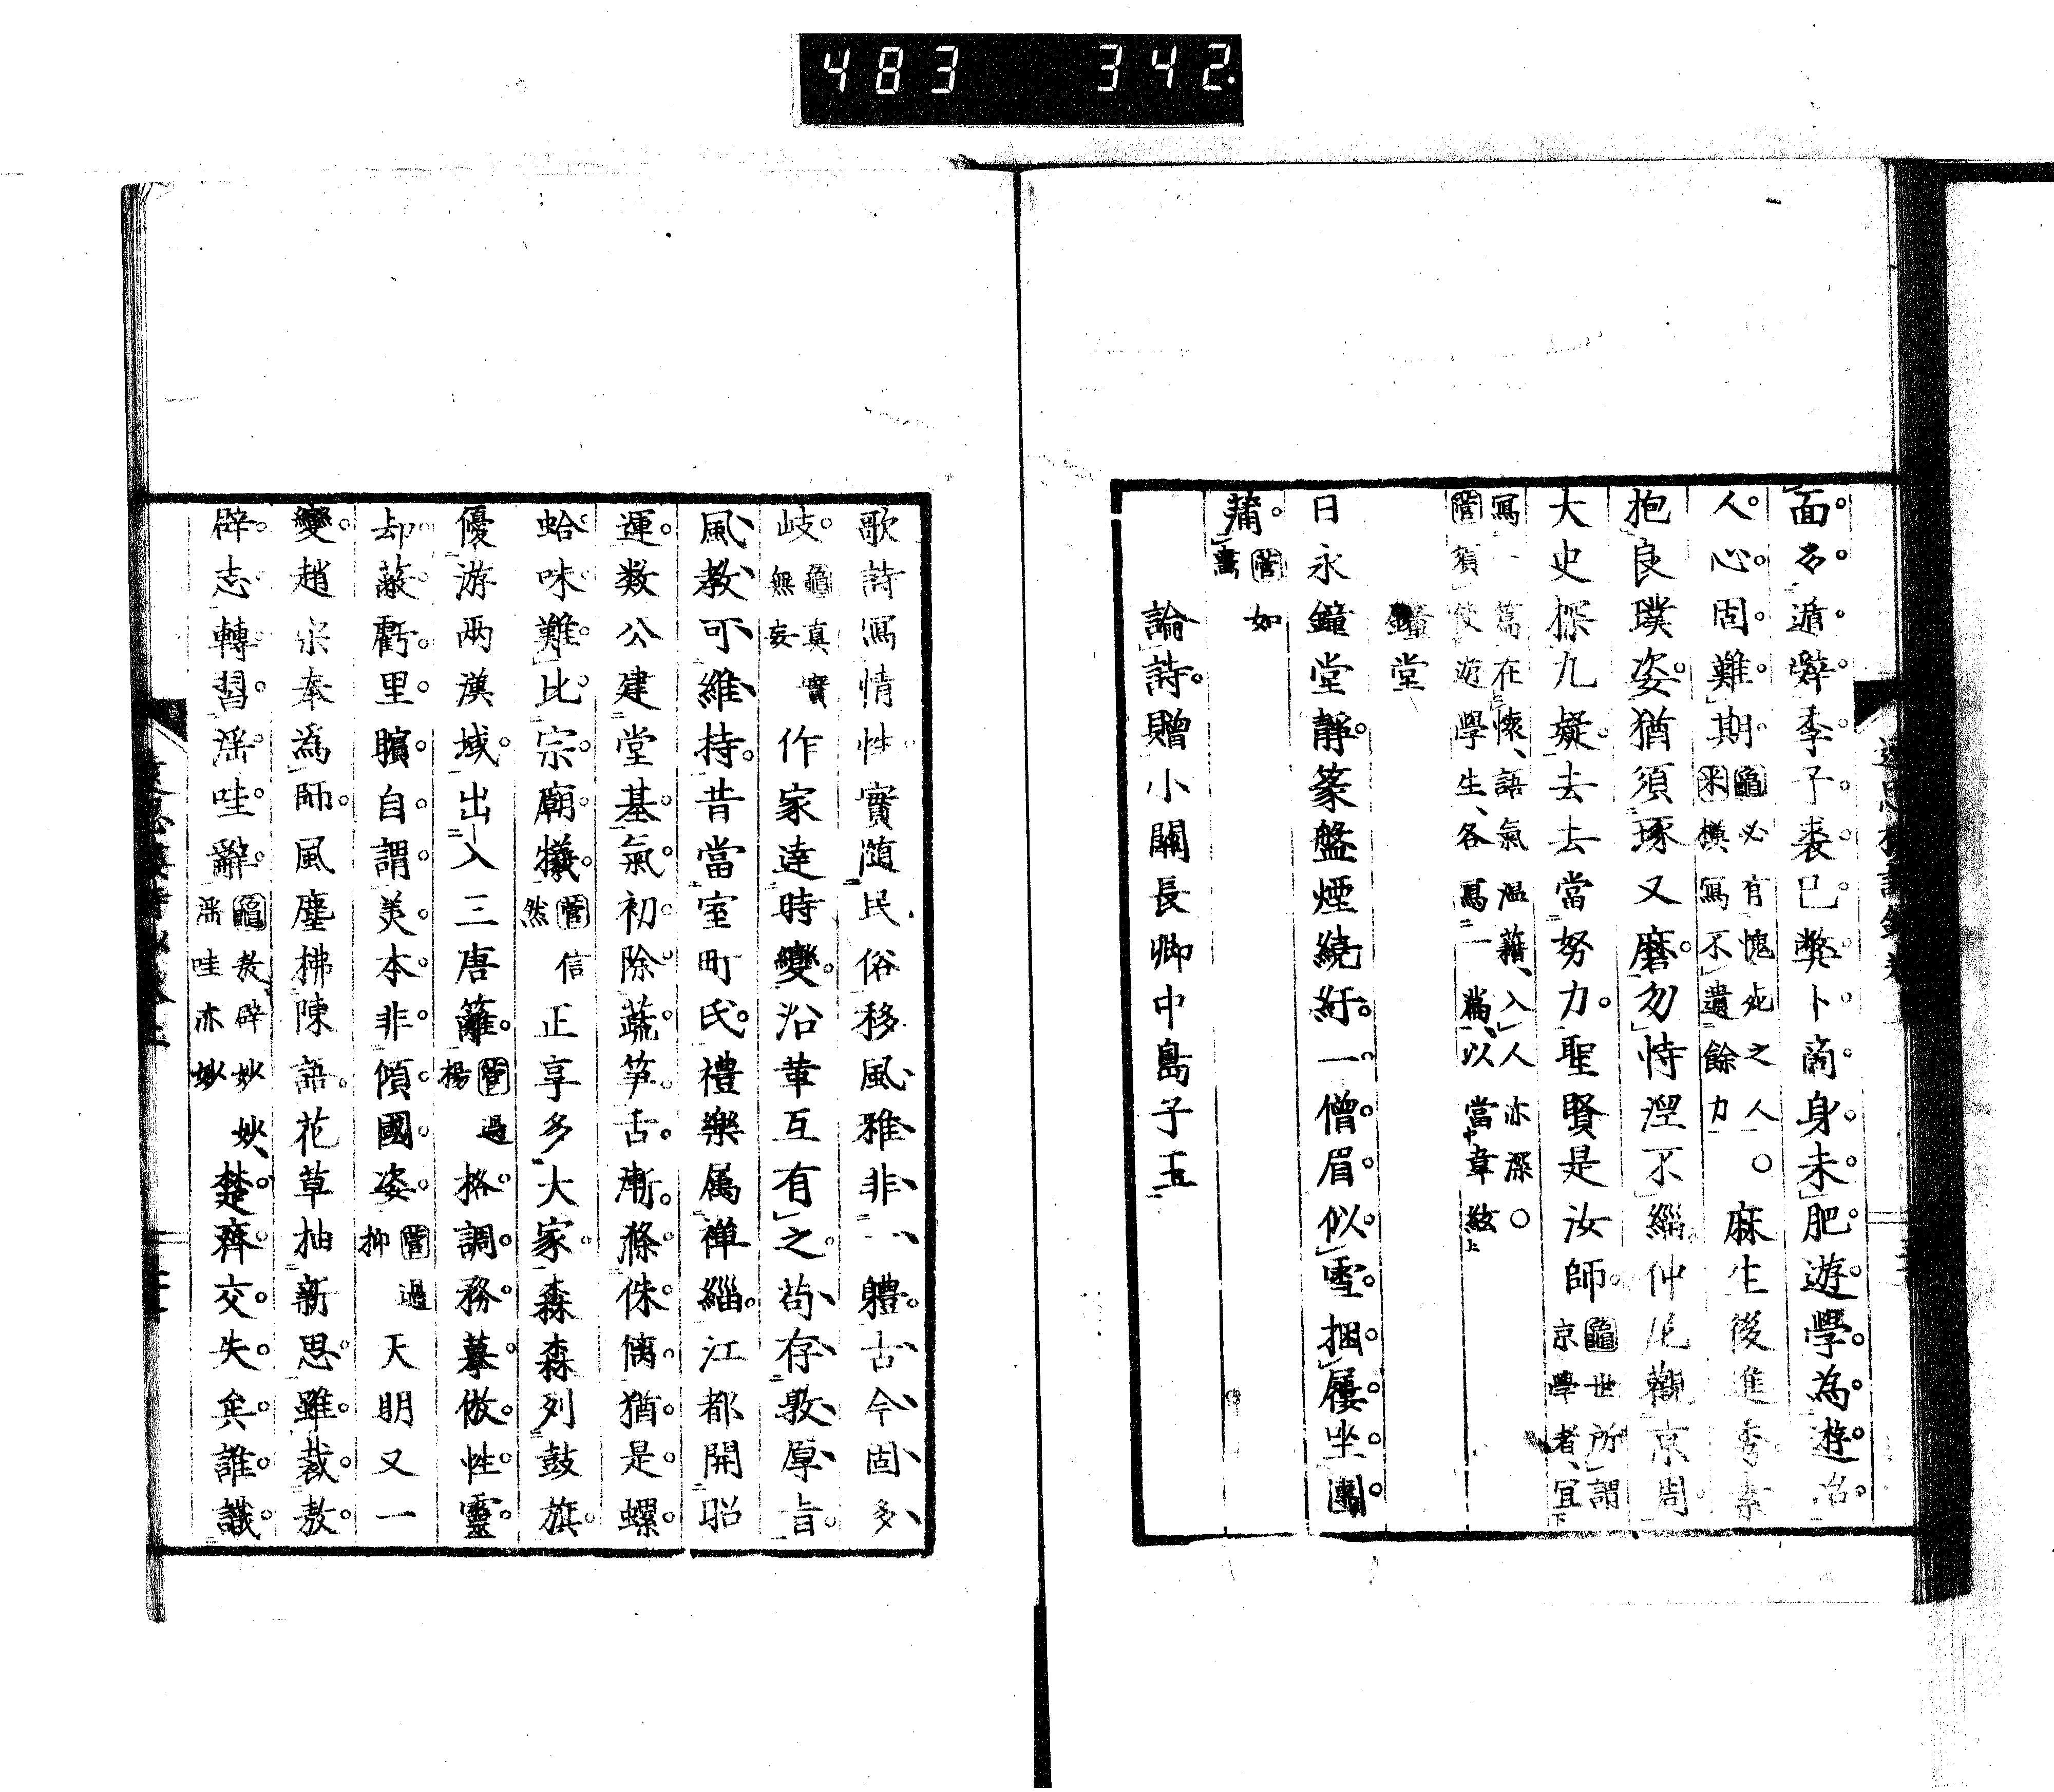 483 342
面多遁辭季子裘已弊卜商身未肥遊學為遊冶
人心固難期 龜必有愧此之人 米模寫不遺餘力 ○麻生後進秀素
抱良璞姿猶須琢又磨勿恃涅不緇仲尼觀京周
大史探九凝去去當努力聖賢是汝師 龜世所謂京學者宜
寫一篇在懷語氣溫藉入人亦深○ 管須使遊學生各寫一篇以當韋絃
鐘堂
日永鐘堂靜篆盤煙繞紆一僧眉似雪捆屨坐團
蒲 管如畫
論詩贈小關長卿中島子玉
歌詩寫情性實隨民俗移風雅非一體古今固多
岐 龜真實無妄 作家達時變沿革互有之苟存敦厚旨
風教可維持昔當室町氏禮樂屬禪緇江都開昭
運數公建堂基氣初除蔬筍舌漸滌侏僑猶是螺
蛤味難比宗廟犧 管信然 正享多大家森森列鼓旗
優游兩漢域出入三唐籬 管過楊 格調務摹倣性靈
却蔽虧里矉自謂美本非傾國姿 管過抑 天明又一
變趙宋奉為師風塵拂陳語花草抽新思雖裁敖
辟志轉習淫哇辭 龜敖辟妙妙淫哇亦妙妙 楚齊交失矣誰識